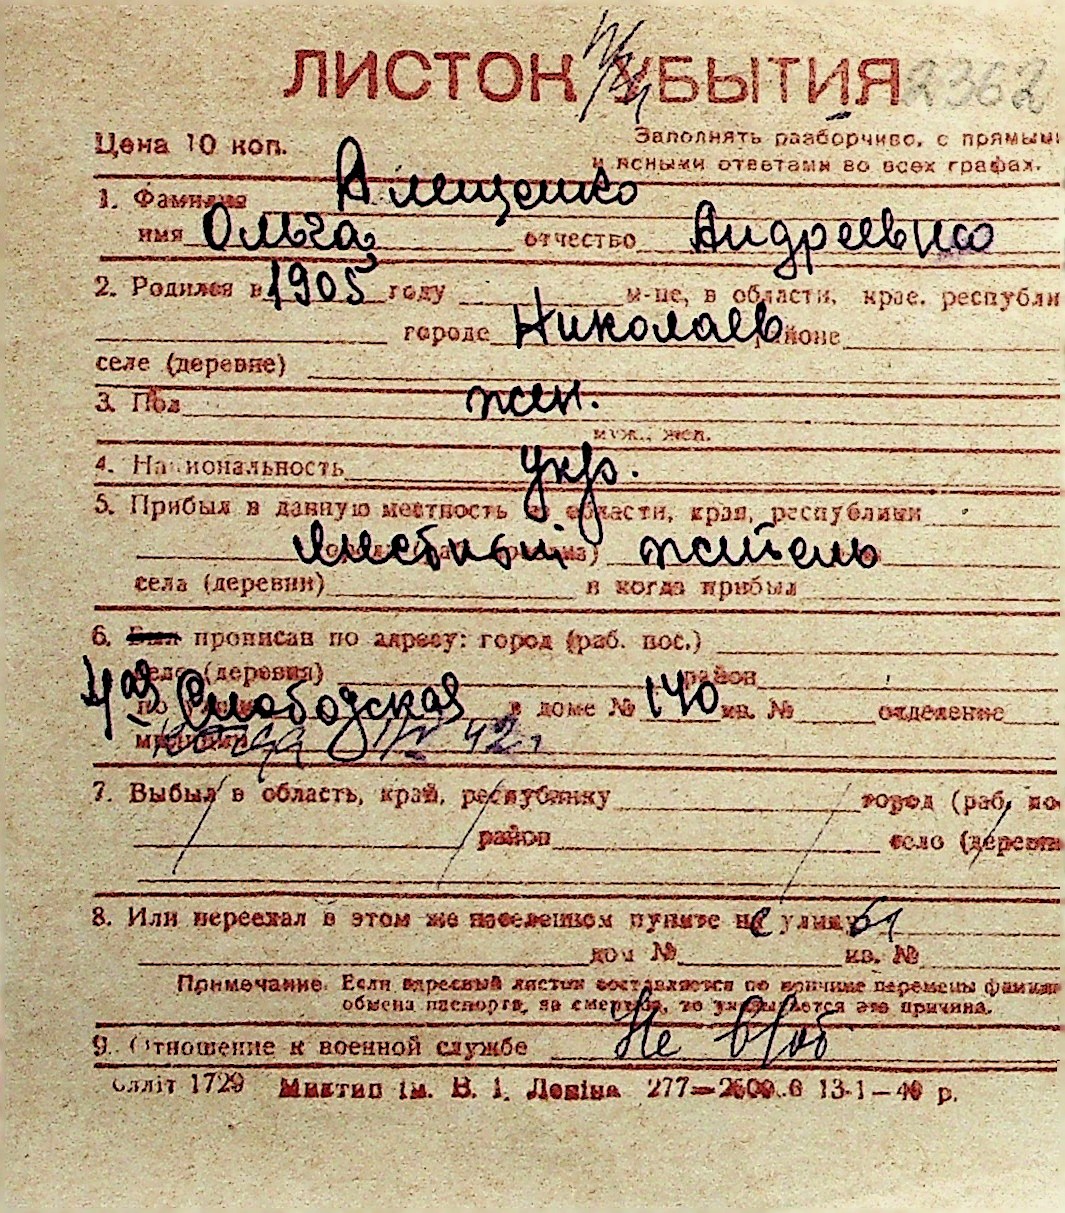 ЛИСТОК УБЫТИЯ 2362
Цена 10 коп.
Заполнять разборчиво, с прямыми
и ясными ответами во всех графах.
1. Фамилия Алещенко
имя Ольга отчество Андреевна
2. Родился в 1905 году м-це, в области, крае, республи
городе Николаев районе
селе (деревне)
3. Пол жен.
муж., жен.
4. Национальность укр.
5. Прибыл в данную местность из области, края, республики
местный житель
села (деревни) и когда прибыл
6. Был прописан по адресу: город (раб. пос.)
село (деревня) район
4ая Слободская в доме № 140 кв. № отделение
милиции 42 г
7. Выбыл в область, край, республику город (раб. по
район село (деревня
8. Или переехал в этом же населенном пункте на улицу
дом № кв. №
Примечание. Если адресный листок составляется по причине перемены фамилии
обмена паспорта, за смертью, то указывается эта причина.
9. Отношение к военной службе Не в/об
Олліт 1729 Миктип ім. В. І. Леніна 277—2500.0 13-1—40 р.